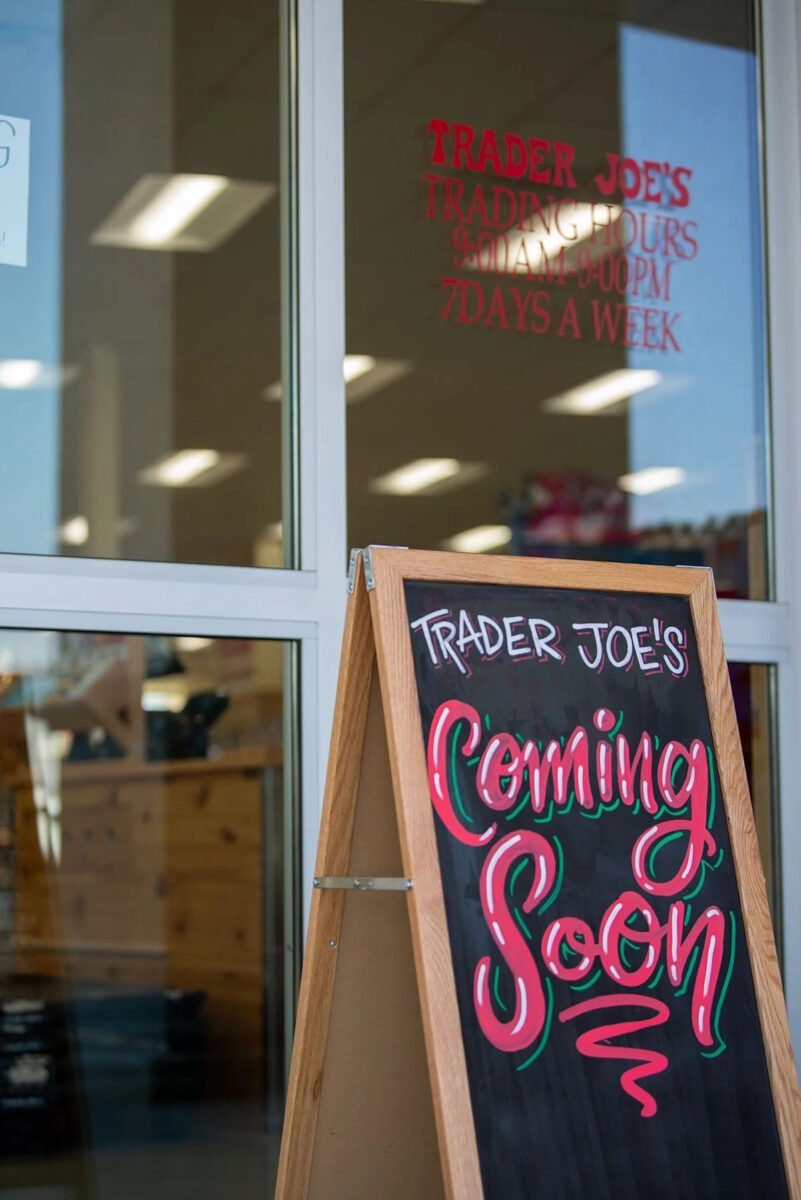 TRADER JOE'S
TRADING HOURS
9:00AM-9:00PM
7 DAYS A WEEK
TRADER JOE'S
Coming
Soon